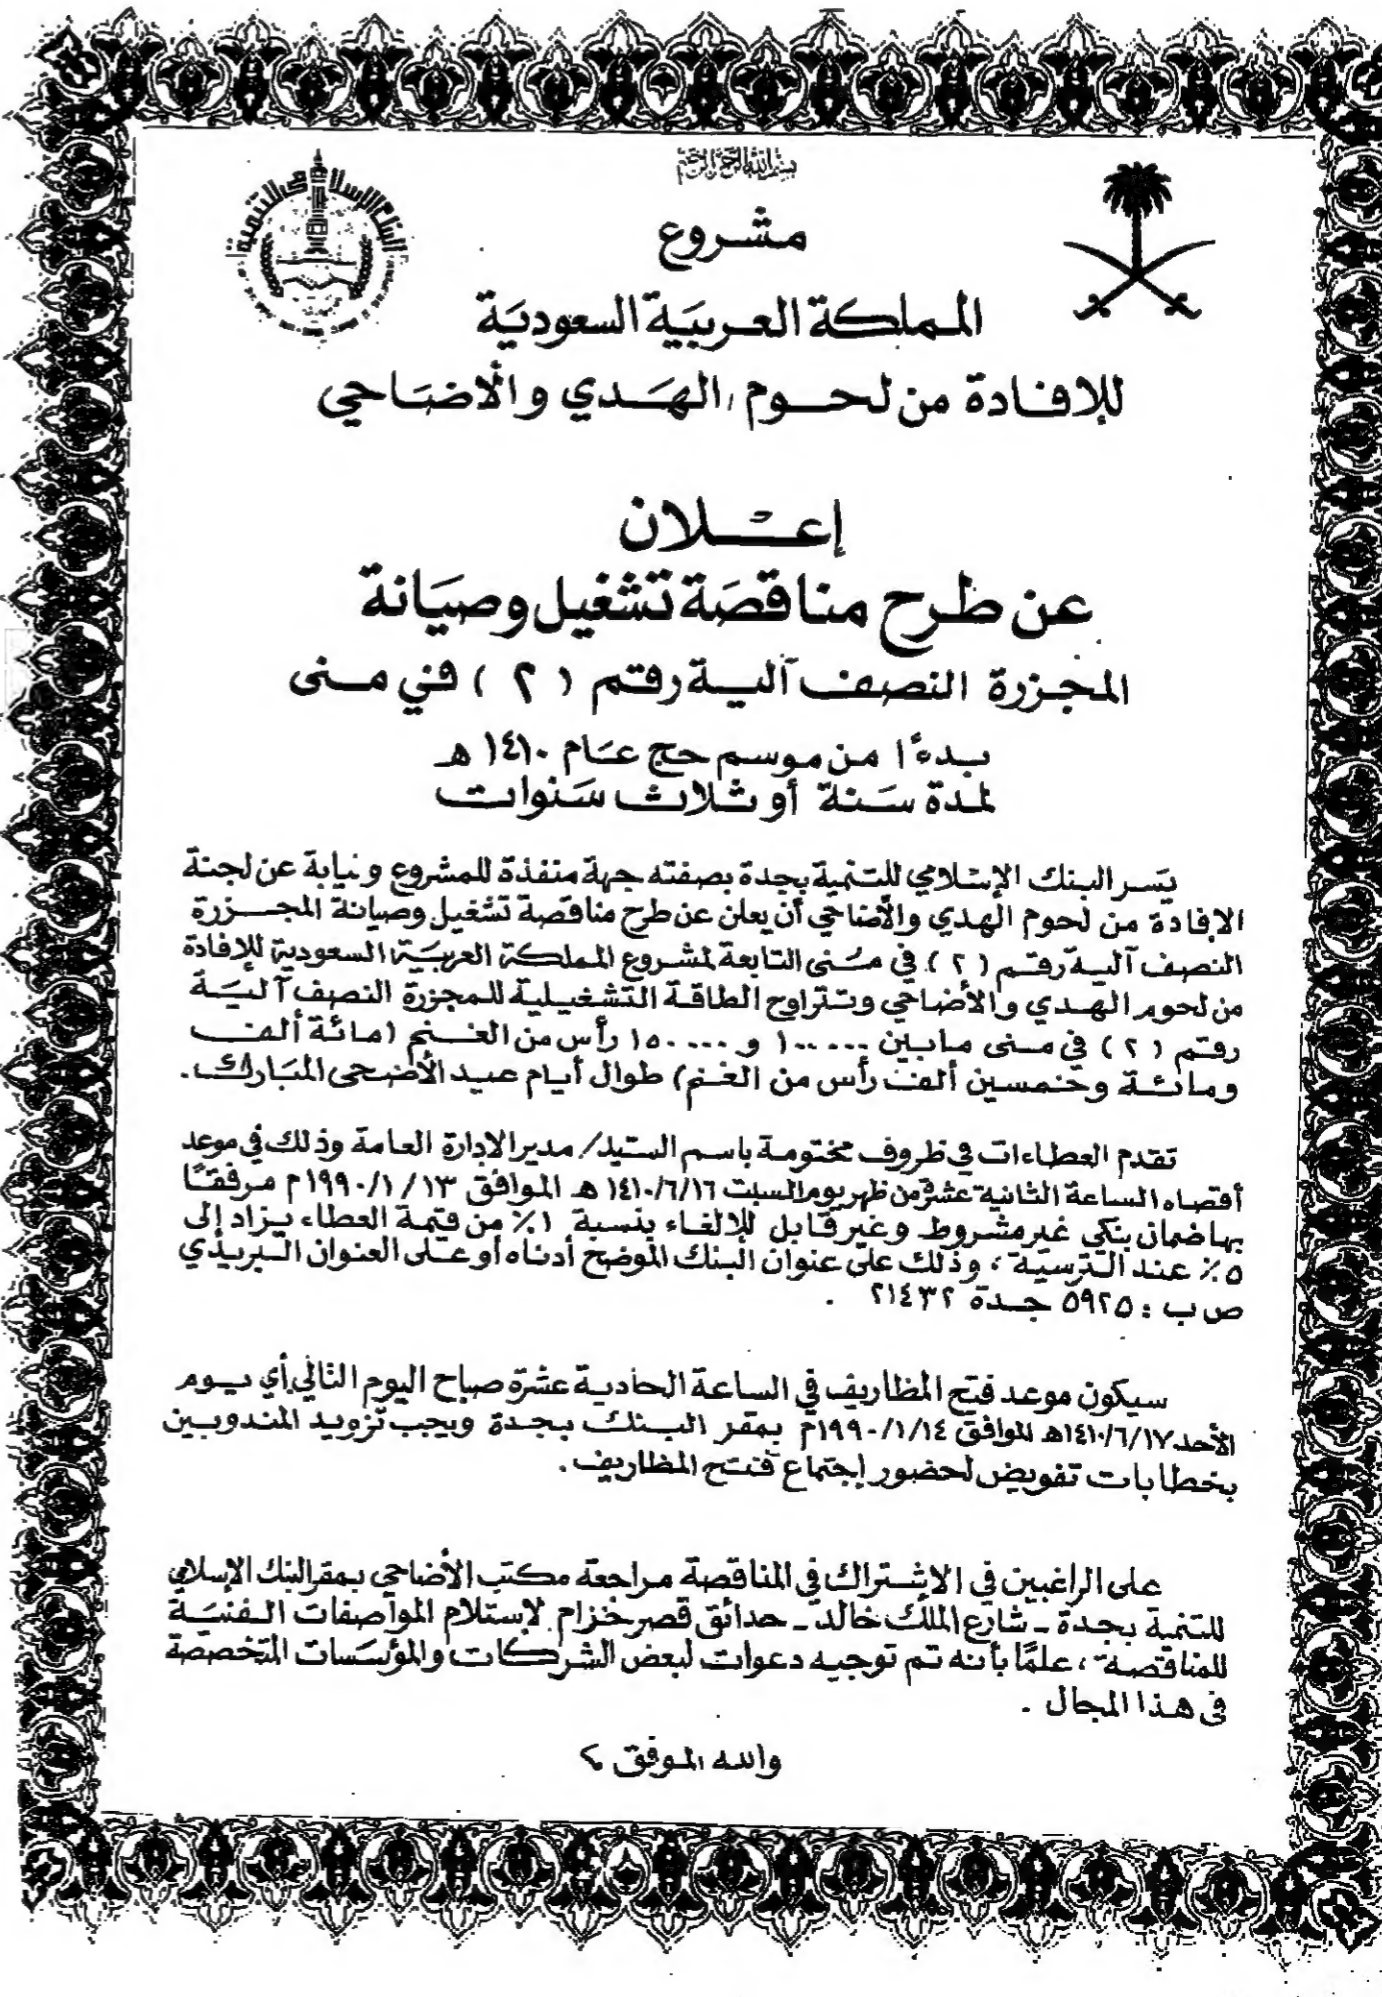 بسم الله الرحمن الرحيم
البنك الإسلامي للتنمية
مشروع
المملكة العربية السعودية
للإفادة من لحوم الهدي والأضاحي
إعلان
عن طرح مناقصة تشغيل وصيانة
المجزرة النصف آلية رقم (٢) في منى
بدءًا من موسم حج عام ١٤١٠ هـ
لمدة سنة أو ثلاث سنوات
يسر البنك الإسلامي للتنمية بجدة بصفته جهة منفذة للمشروع ونيابة عن لجنة
الإفادة من لحوم الهدي والأضاحي أن يعلن عن طرح مناقصة تشغيل وصيانة المجزرة
النصف آلية رقم (٢) في منى التابعة لمشروع المملكة العربية السعودية للإفادة
من لحوم الهدي والأضاحي وتتراوح الطاقة التشغيلية للمجزرة النصف آلية
رقم (٢) في منى مابين ١٠٠٠٠٠ و ١٥٠٠٠٠ رأس من الغنم (مائة ألف
ومائة وخمسين ألف رأس من الغنم) طوال أيام عيد الأضحى المبارك.
تقدم العطاءات في ظروف مختومة باسم السيد/ مدير الإدارة العامة وذلك في موعد
أقصاه الساعة الثانية عشرة من ظهر يوم السبت ١٤١٠/٦/١٦ هـ الموافق ١٩٩٠/١/١٣م مرفقًا
بها ضمان بنكي غير مشروط وغير قابل للإلغاء بنسبة ١٪ من قيمة العطاء يزاد إلى
٥٪ عند الترسية، وذلك على عنوان البنك الموضح أدناه أو على العنوان البريدي
ص ب : ٥٩٢٥ جدة ٢١٤٣٢ .
سيكون موعد فتح المظاريف في الساعة الحادية عشرة صباح اليوم التالي أي يوم
الأحد ١٤١٠/٦/١٧هـ الموافق ١٩٩٠/١/١٤م بمقر البنك بجدة ويجب تزويد المندوبين
بخطابات تفويض لحضور إجتماع فتح المظاريف.
على الراغبين في الإشتراك في المناقصة مراجعة مكتب الأضاحي بمقر البنك الإسلامي
للتنمية بجدة - شارع الملك خالد - حدائق قصر خزام لإستلام المواصفات الفنية
للمناقصة، علمًا بأنه تم توجيه دعوات لبعض الشركات والمؤسسات المتخصصة
في هذا المجال .
والله الموفق